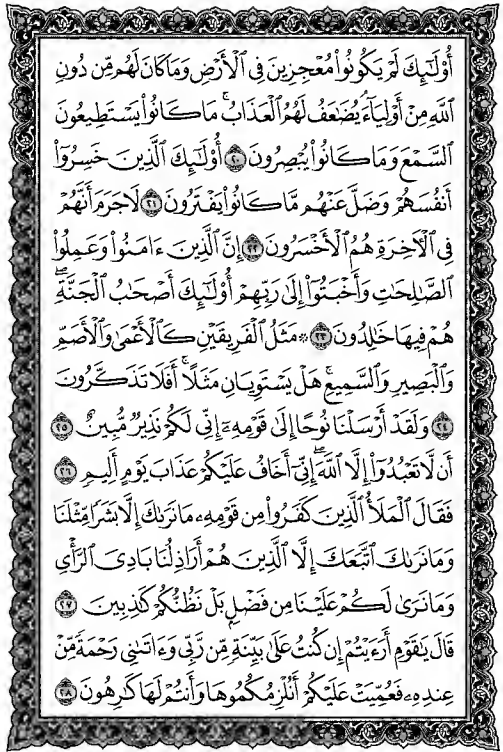 أُو۟لَٰٓئِكَ لَمْ يَكُونُوا۟ مُعْجِزِينَ فِى ٱلْأَرْضِ وَمَا كَانَ لَهُم مِّن دُونِ
ٱللَّهِ مِنْ أَوْلِيَآءَ ۘ يُضَٰعَفُ لَهُمُ ٱلْعَذَابُ ۚ مَا كَانُوا۟ يَسْتَطِيعُونَ
ٱلسَّمْعَ وَمَا كَانُوا۟ يُبْصِرُونَ ٢٠ أُو۟لَٰٓئِكَ ٱلَّذِينَ خَسِرُوٓا۟
أَنفُسَهُمْ وَضَلَّ عَنْهُم مَّا كَانُوا۟ يَفْتَرُونَ ٢١ لَا جَرَمَ أَنَّهُمْ
فِى ٱلْءَاخِرَةِ هُمُ ٱلْأَخْسَرُونَ ٢٢ إِنَّ ٱلَّذِينَ ءَامَنُوا۟ وَعَمِلُوا۟
ٱلصَّٰلِحَٰتِ وَأَخْبَتُوٓا۟ إِلَىٰ رَبِّهِمْ أُو۟لَٰٓئِكَ أَصْحَٰبُ ٱلْجَنَّةِ ۖ
هُمْ فِيهَا خَٰلِدُونَ ٢٣ ۞ مَثَلُ ٱلْفَرِيقَيْنِ كَٱلْأَعْمَىٰ وَٱلْأَصَمِّ
وَٱلْبَصِيرِ وَٱلسَّمِيعِ ۚ هَلْ يَسْتَوِيَانِ مَثَلًا ۚ أَفَلَا تَذَكَّرُونَ
٢٤ وَلَقَدْ أَرْسَلْنَا نُوحًا إِلَىٰ قَوْمِهِۦٓ إِنِّى لَكُمْ نَذِيرٌ مُّبِينٌ ٢٥
أَن لَّا تَعْبُدُوٓا۟ إِلَّا ٱللَّهَ ۖ إِنِّىٓ أَخَافُ عَلَيْكُمْ عَذَابَ يَوْمٍ أَلِيمٍ ٢٦
فَقَالَ ٱلْمَلَأُ ٱلَّذِينَ كَفَرُوا۟ مِن قَوْمِهِۦ مَا نَرَىٰكَ إِلَّا بَشَرًا مِّثْلَنَا
وَمَا نَرَىٰكَ ٱتَّبَعَكَ إِلَّا ٱلَّذِينَ هُمْ أَرَاذِلُنَا بَادِىَ ٱلرَّأْىِ
وَمَا نَرَىٰ لَكُمْ عَلَيْنَا مِن فَضْلٍۭ بَلْ نَظُنُّكُمْ كَٰذِبِينَ ٢٧
قَالَ يَٰقَوْمِ أَرَءَيْتُمْ إِن كُنتُ عَلَىٰ بَيِّنَةٍ مِّن رَّبِّى وَءَاتَىٰنِى رَحْمَةً مِّنْ
عِندِهِۦ فَعُمِّيَتْ عَلَيْكُمْ أَنُلْزِمُكُمُوهَا وَأَنتُمْ لَهَا كَٰرِهُونَ ٢٨